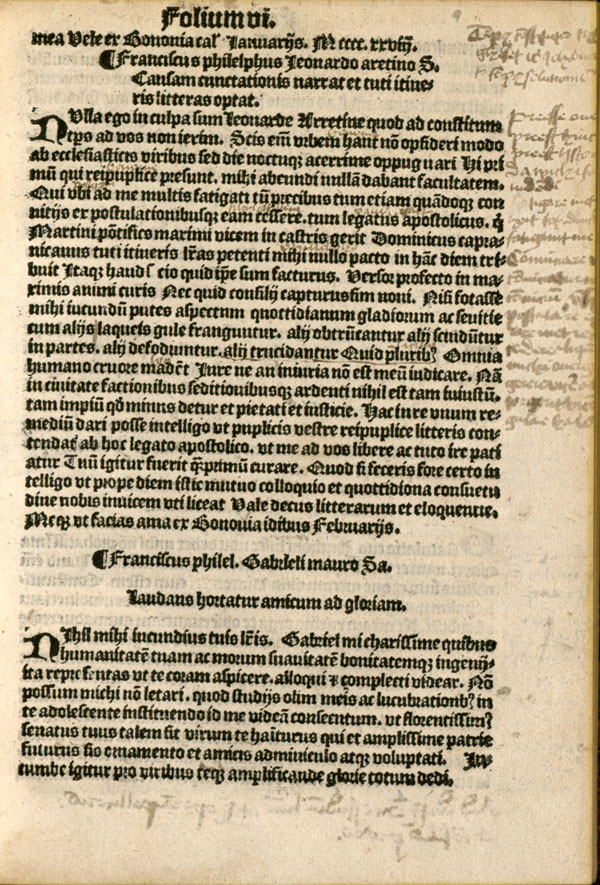 Folium vi.
mea Vele ex Bononia cal̄ Januarijs. M cccc. xxviij.
¶ Franciscus philelphus Leonardo aretino S.
Causam cunctationis narrat et tuti itine-
ris litteras optat.
NUlla ego in culpa sum Leonarde Arretine quod ad constitum
tēpꝰ ad vos non ierim. Scis em̄ vrbem hanc nō opsideri modo
ab ecclesiasticis viribus sed die noctuqꝫ acerrime oppug nari Hi pri
mū qui reipuplice presunt. mihi abeundi nullā dabant facultatem.
Qui vbi ad me multis fatigati tū precibus tum etiam quādoqꝫ con
uitijs ex postulationibusqꝫ eam cessere. tum legatus apostolicus. q̄
Martini pōtificis maximi vicem in castris gerit Dominicus capra-
nicanus tuti itineris lr̄as petenti mihi nullo pacto in hāc diem tri-
buit Itaqꝫ haud scio quid ip̄e sum facturus. Versor profecto in ma-
ximis animi curis Nec quid consilij capturus sim noui. Nisi fotasse
mihi iucundū putes aspectum quottidianum gladiorum ac seuitie
cum alijs laqueis gule franguntur. alij obtrūcantur alij scindūtur
in partes. alij defodiuntur. alij trucidantur Quid plurib⁹? Omnia
humano cruore madēt Jure ne an iniuria nō est meū iudicare. Nā
in ciuitate factionibus seditionibusqꝫ ardenti nihil est tam iniustū.
tam impiū qđ minus detur et pietati et iusticie. Hac in re vnum re-
mediū dari posse intelligo vt puplicis vestre reipuplice litteris con-
tendat̄ ab hoc legato apostolico. vt me ad vos libere ac tuto ire pati
atur Tuū igitur fuerit q̄primū curare. Quod si feceris fore certo in
telligo vt prope diem istic mutuo colloquio et quottidiona consuetu
dine nobis inuicem vti liceat Vale decus litterarum et eloquentie.
Meqꝫ vt facias ama ex Bononia idibus Februarijs.
¶ Franciscus philel. Gabrieli mauro Sa.
Laudans hortatur amicum ad gloriam.
NIhil mihi iucundius tuis lr̄is. Gabriel mi charissime quibus
humanitatē tuam ac morum suauitatē bonitatemqꝫ ingenij
ita representas vt te coram aspicere. alloqui ⁊ complecti videar. Nō
possum michi nō letari. quod studijs olim meis ac lucubrationib⁹ in
te adolescente instituendo id me videā consecutum. vt florentissim⁹
senatus tuus talem sit virum te habiturus qui et amplissime patrie
futurus sis ornamento et amicis adminiculo atqꝫ voluptati. In-
cumbe igitur pro viribus teqꝫ amplificande glorie totum dedi.